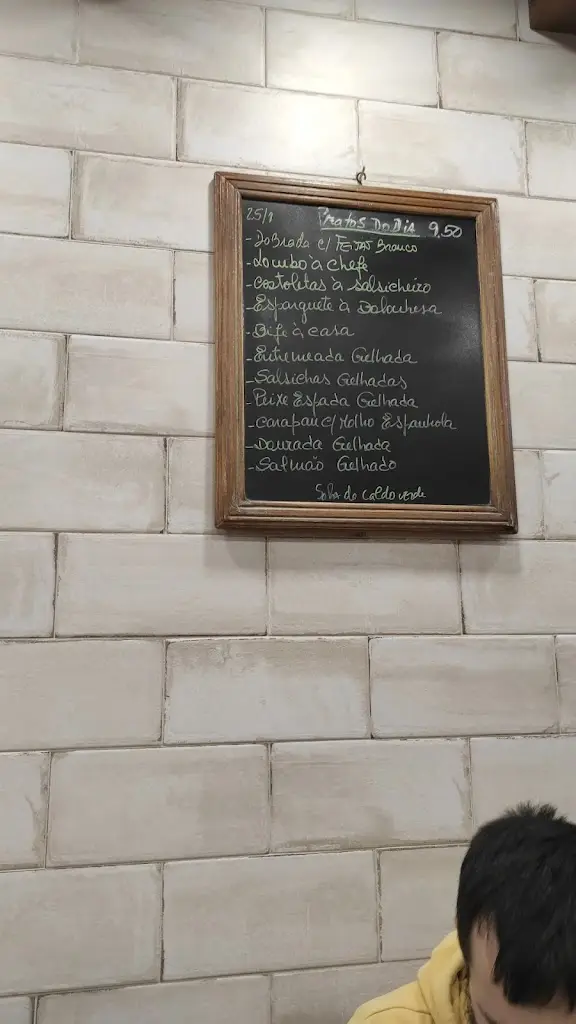 25/1 Pratos Do Dia 9,50
- Dobrada c/ Feijão Branco
- Lombo à Chefe
- Costoletas à Salsicheiro
- Esparguete à Bolonhesa
- Bife à casa
- Entremeada Grelhada
- Salsichas Grelhadas
- Peixe Espada Grelhada
- Carapau c/ Molho Espanhola
- Dourada Grelhada
- Salmão Grelhado
Sopa de Caldo verde